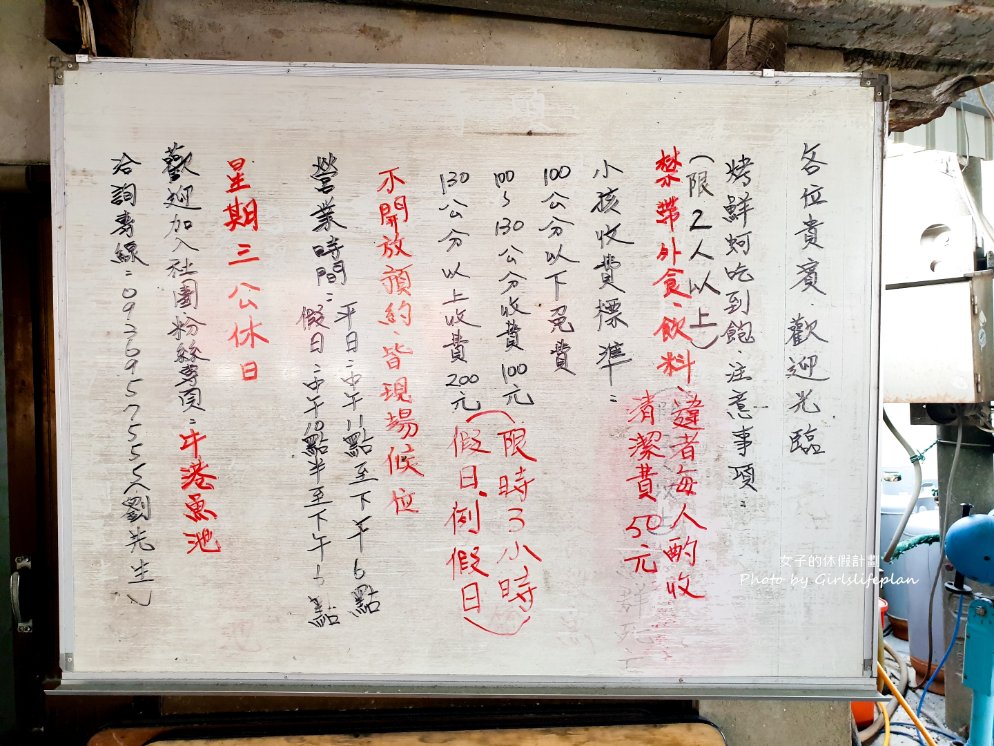 各位貴賓.歡迎光臨
烤鮮蚵吃到飽.注意事項:
(限2人以上)
禁帶外食、飲料、違者每人酌收
清潔費50元
小孩收費標準:
100公分以下免費
100~130公分收費100元
130公分以上收費200元
(限時3小時
假日.例假日)
不開放預約.皆現場候位
營業時間:平日:中午11點至下午6點
假日:中午10點半至下午5點
星期三公休日
歡迎加入社團粉絲專頁:斗港魚池
洽詢專線:0926957555(劉先生)
女子的休假計劃
Photo by Girlslifeplan